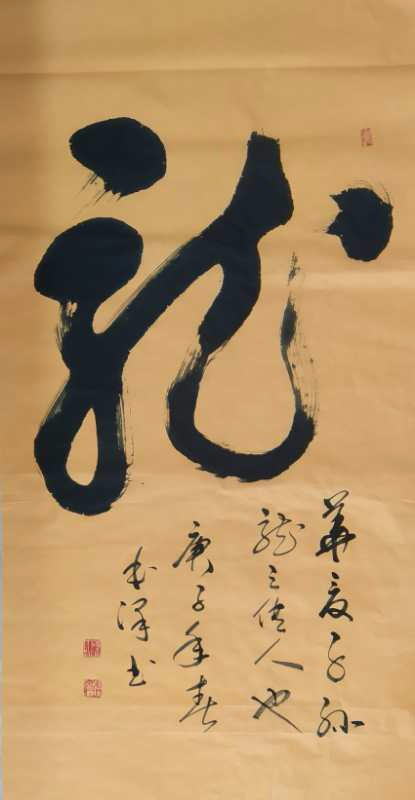 龍
華夏子孫
龍之传人也
庚子年春
泽书